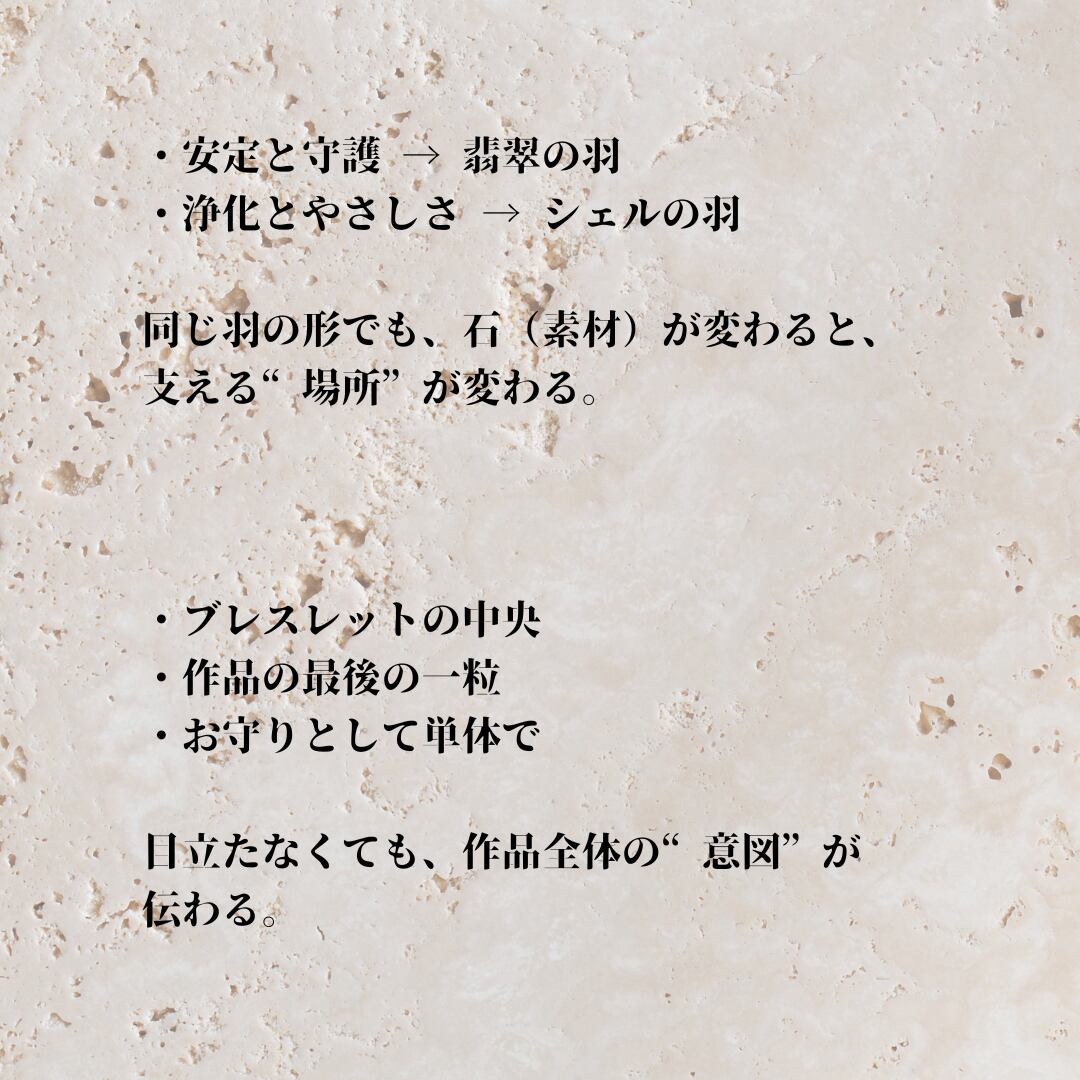 ・安定と守護 → 翡翠の羽
・浄化とやさしさ → シェルの羽
同じ羽の形でも、石（素材）が変わると、
支える“ 場所” が変わる。
・ブレスレットの中央
・作品の最後の一粒
・お守りとして単体で
目立たなくても、作品全体の“ 意図” が
伝わる。